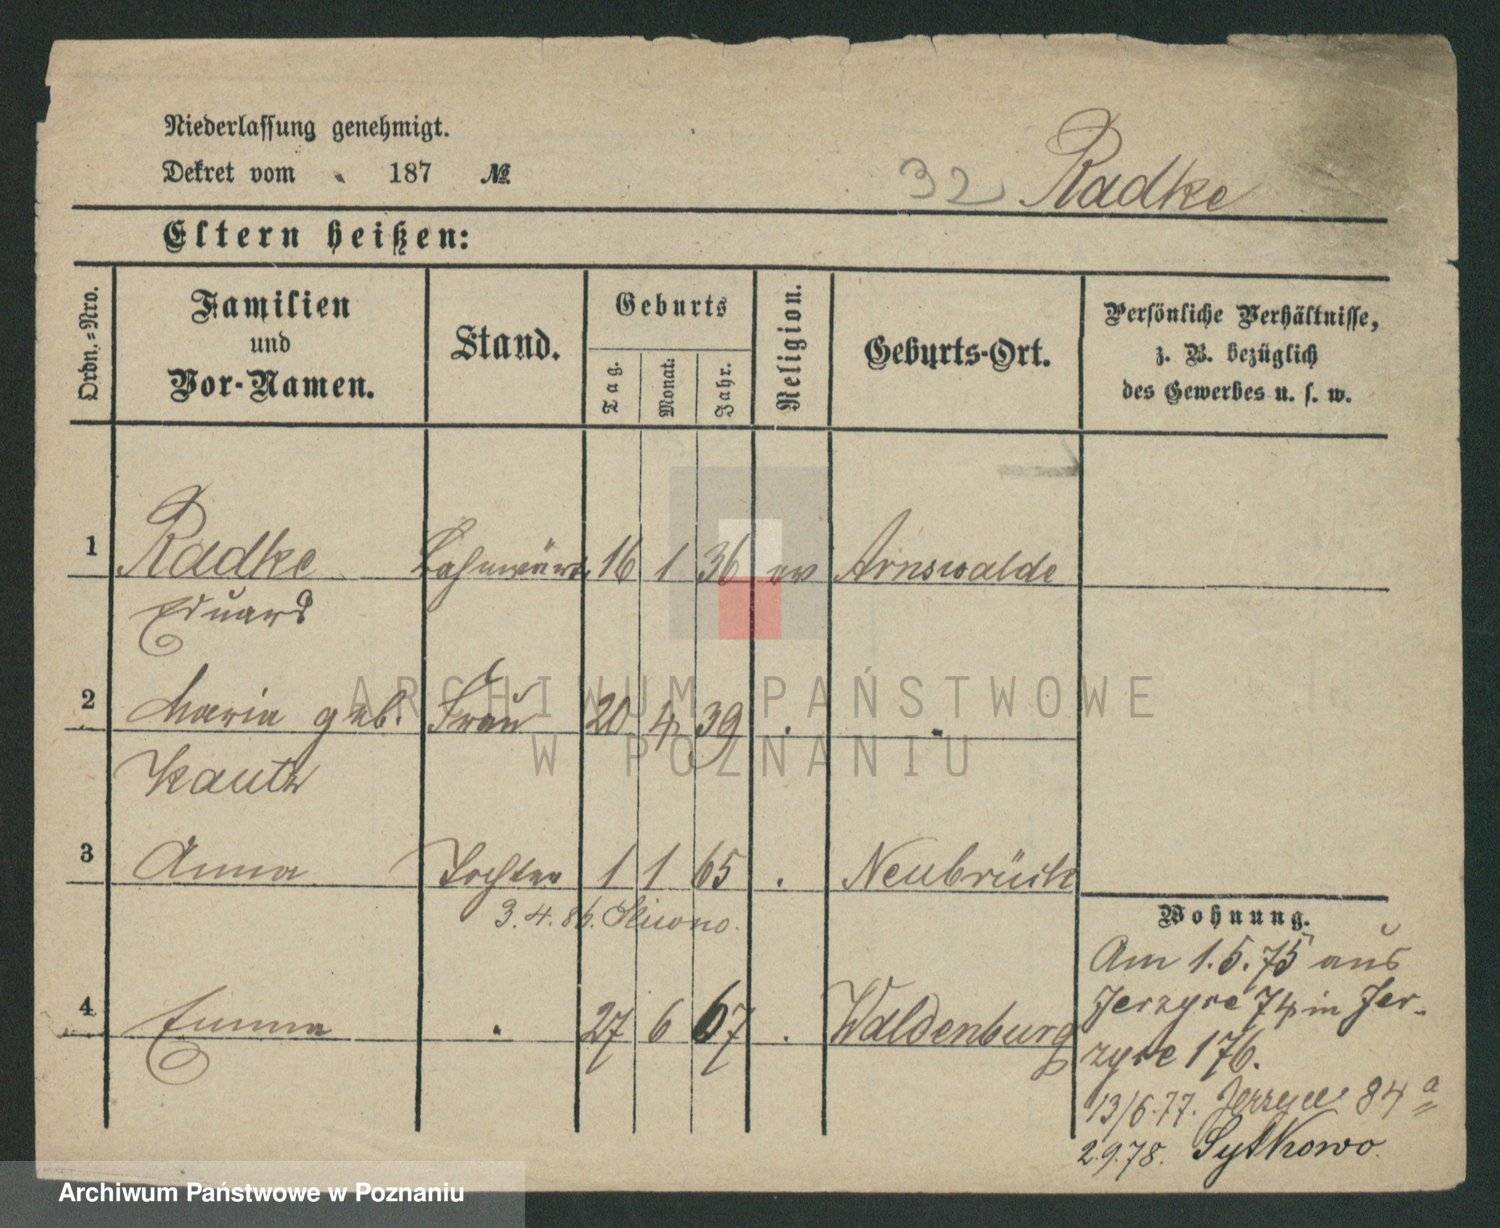 Niederlassung genehmigt.
Dekret vom . 187 №
32 Radke
Eltern heißen:
Ordn.=Nro.
Familien
und
Vor-Namen.
Stand.
Geburts
Tag.
Monat.
Jahr.
Religion.
Geburts-Ort.
Persönliche Verhältnisse,
z. B. bezüglich
des Gewerbes u. s. w.
1 Radke 16 1 36 ev Arnswalde
Eduard
2 Maria geb. Frau 20 4 39 . "
Kautz
3 Anna Tochter 1 1 65 . Neubrück
3.4.86.
4 Emma " 27 6 67 . Waldenburg
Wohnung.
Am 1.5.75 aus
Jerzyce 74 in Jer-
zyce 176.
13/6.77. Jerzyce 84a
2.9.78. Sytkowo.
ARCHIWUM PAŃSTWOWE
W POZNANIU
Archiwum Państwowe w Poznaniu